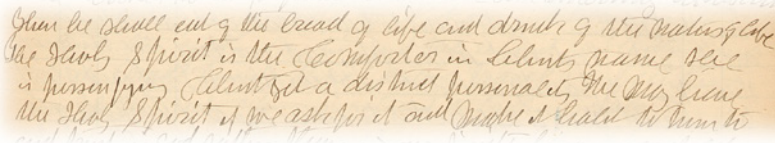 then he shall eat of the bread of life and drink of the water of life
The Holy Spirit is the Comforter in Christs name He
is personifying Christ yet a distinct personality We may have
the Holy Spirit if we ask for it and make it habit to turn to